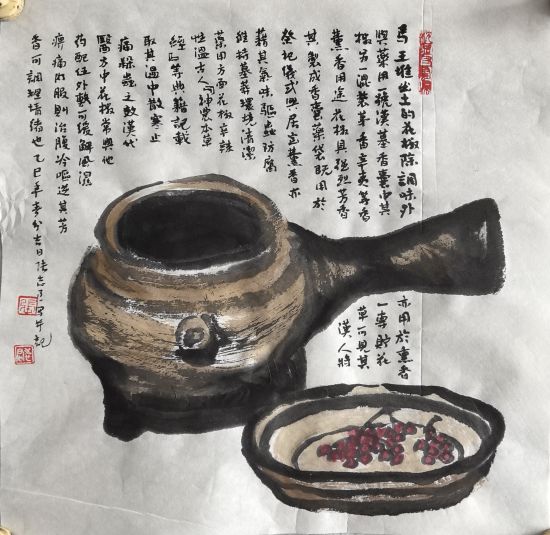 馬王堆出土的花椒除調味外亦用於熏香
與藥用一號漢墓香囊中其一專貯花
椒另混裝茅香辛夷等香草可見其
薰香用途花椒具強烈芳香漢人將
其製成香囊藥袋既用於
祭祀儀式與居室薰香亦
藉其氣味驅蟲防腐
維持墓葬環境清潔
藥用方面花椒辛辣
性溫古人《神農本草
經》等典籍記載
取其溫中散寒止
痛殺蟲之效漢代
醫方中花椒常與他
藥配伍外敷可緩解風濕
痹痛內服則治腹冷嘔逆其芳
香可調理情緒也乙巳年吉日張志并記